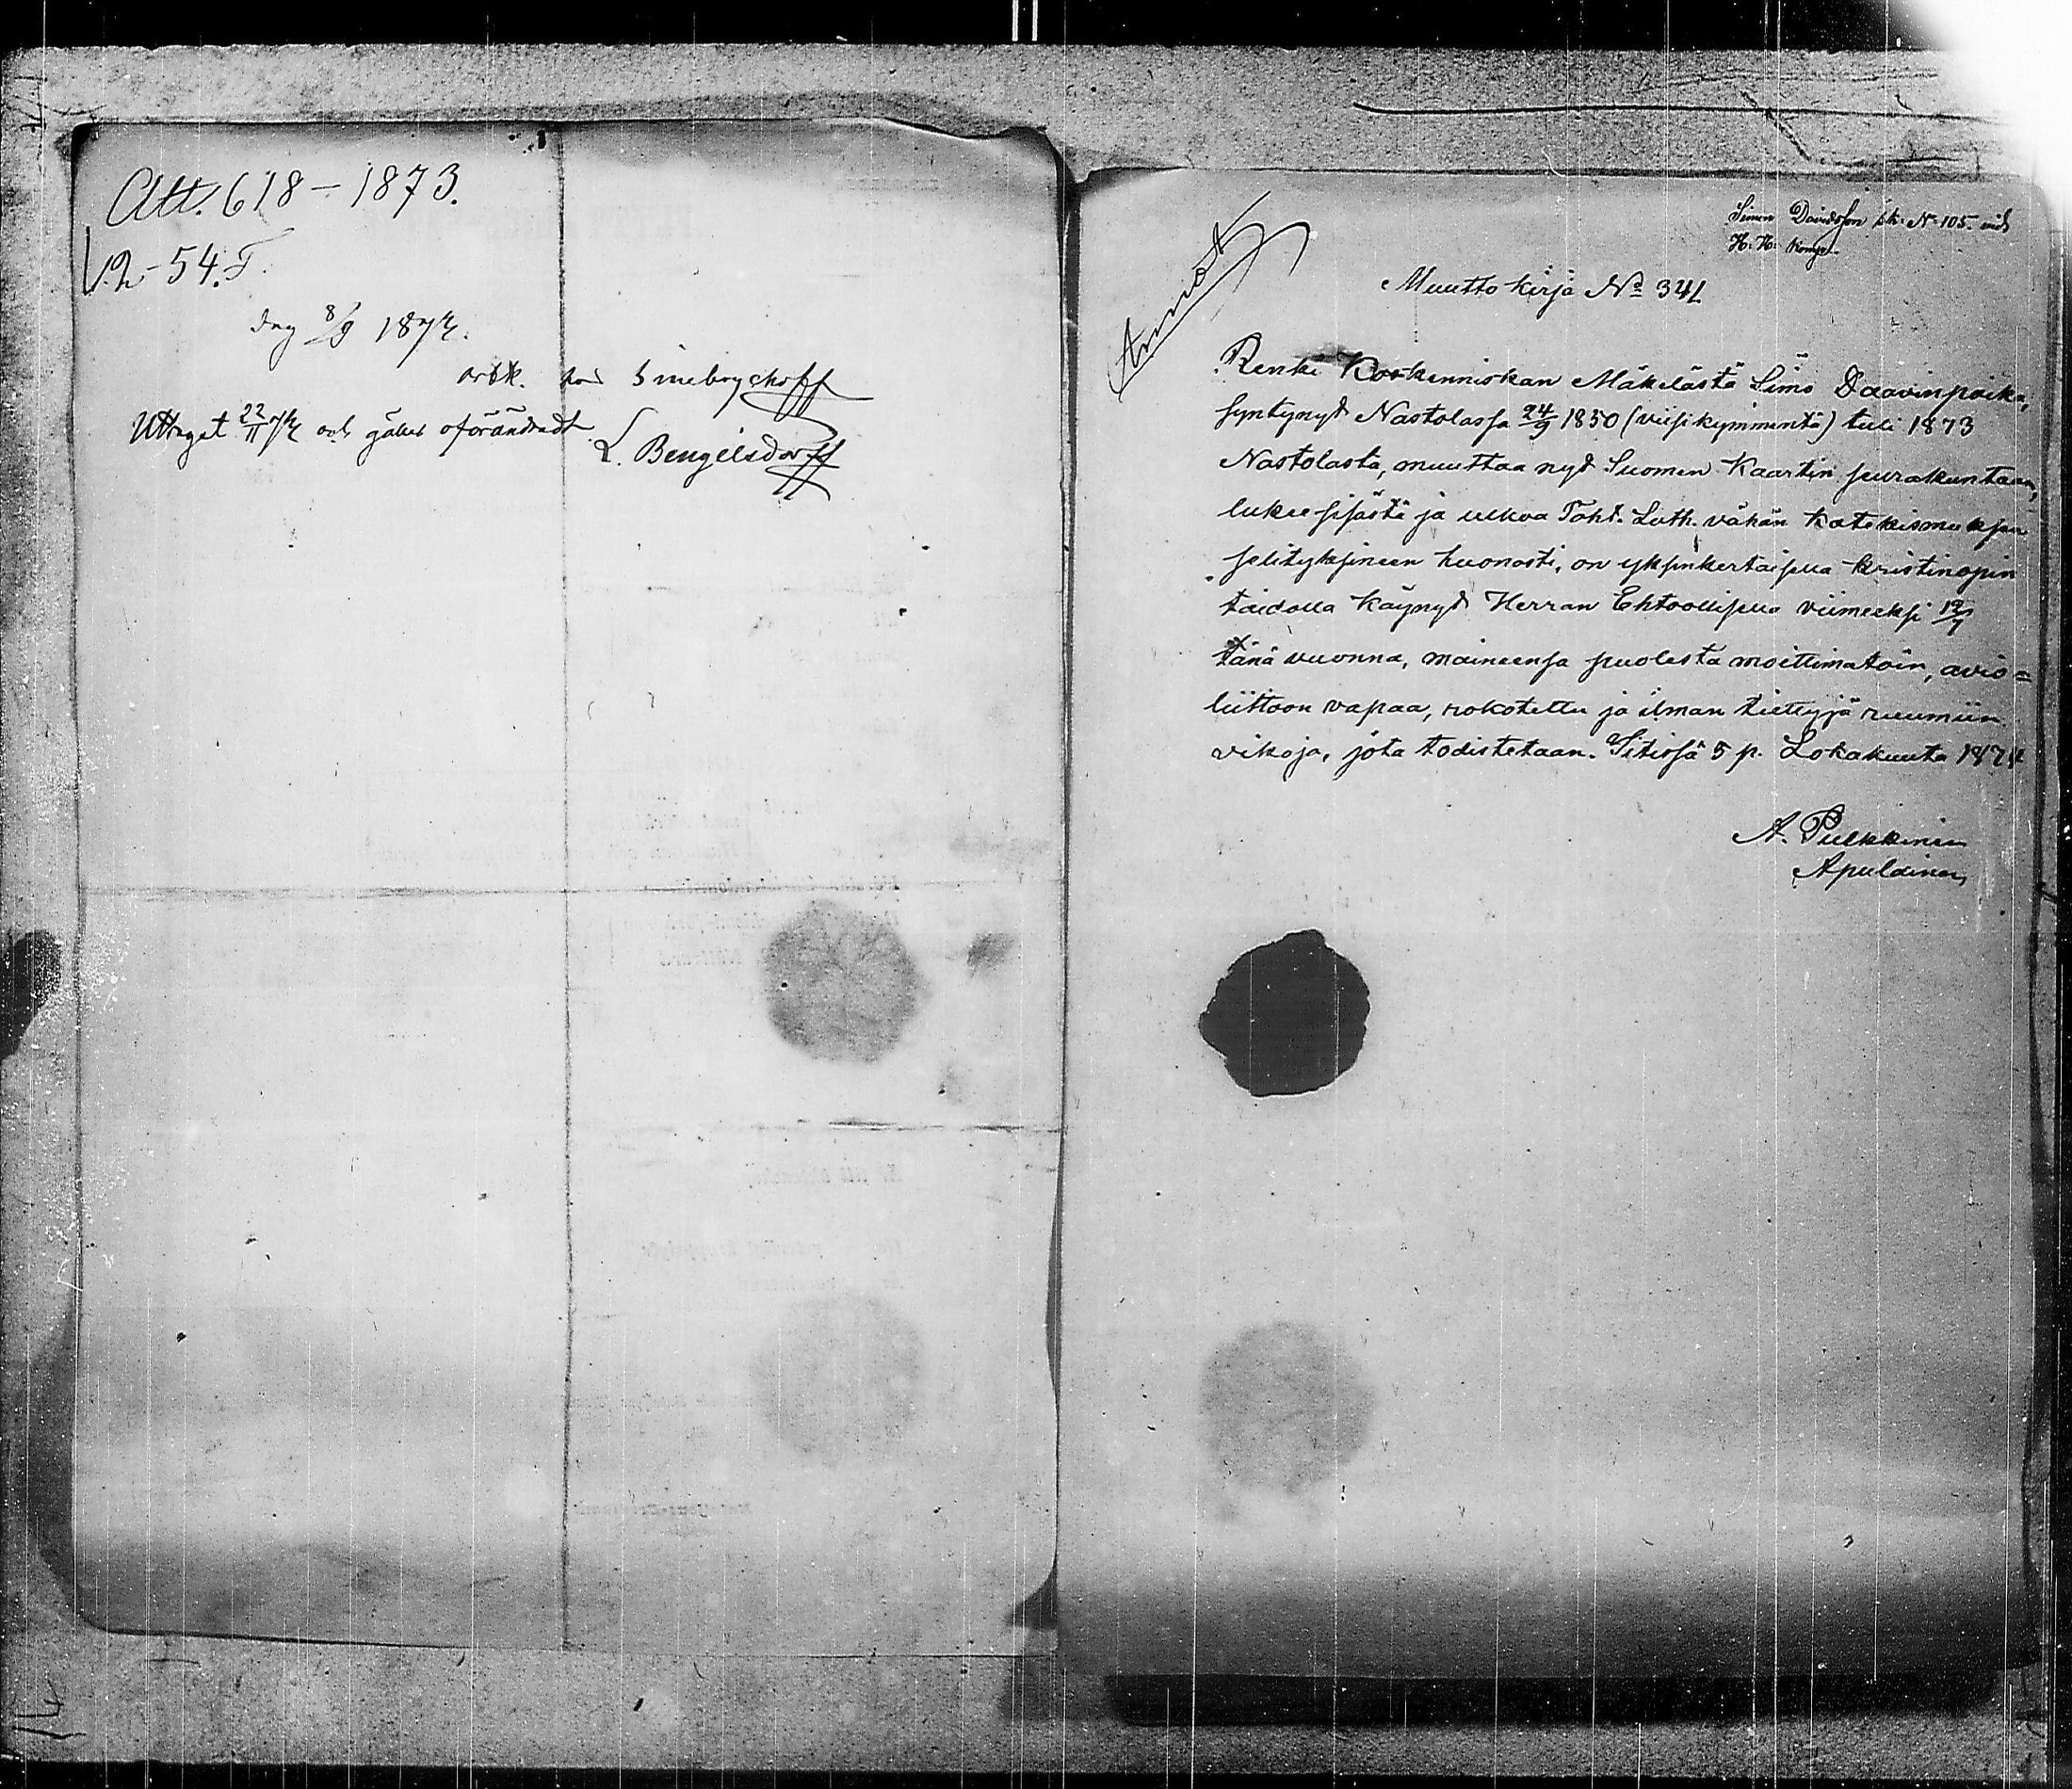 Att. 618 - 1873.
V.2-54.F.
dag 8/9 1874.
arbk. hos Sinebrychoff
Uttaget 22/11 74 och gäller oförändradt
L. Bengelsdorff
Simon Davidsson sk. No 105. vid
H. H. Komp.
Muuttokirja No 341
Renki Koskenniskan Mäkelästä Simo Daavinpoika,
syntynyt Nastolassa 24/9 1850 (viisikymmentä) tuli 1873
Nastolasta, muuttaa nyt Suomen Kaartin seurakuntaan,
lukee sisästä ja ulkoa Toht. Luth. vähän katekismuksen
selityksineen huonosti, on yksinkertaisella kristinopin
taidolla käynyt Herran Ehtoollisella viimeeksi 12/7
tänä vuonna, maineensa puolesta moittimatoin, avio=
liittoon vapaa, rokotettu ja ilman tiettyjä ruumiin
vikoja, jota todistetaan. Iitissä 5 p. Lokakuuta 1874
A. Pulkkinen
Apulainen